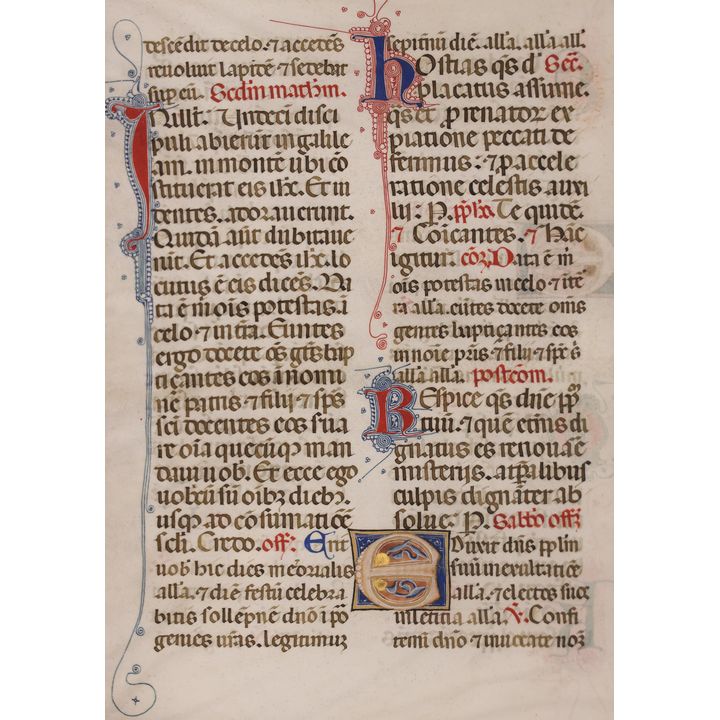 descendit de celo. ⁊ accedēs
reuoluit lapidē ⁊ sedebat
sup̄ eū. Scd̄m mathm.
In ill t̄. Undecī disci
puli abierunt in galile
am. in monte ubi cō
stituerat eis ih̄c. Et ui
dentes. adorauerunt.
Quidā aūt dubitaue
rūt. Et accedēs ih̄c. lo
cutus ē eis dicēs. Da
ta ē m̄ ois potestas ī
celo. ⁊ in t̄ra. Euntes
ergo docete oēs gētēs bap
ticantes eos in nomi
nē patris ⁊ filij ⁊ sp̄s
sc̄i docentes eos s̄ua
re oīa quecūq̄ man
daui uob̄. Et ecce ego
uobcū sū oībꝫ diebꝫ.
usq̄ ad cōsumatiōē
sc̄li. Credo. off. Erit
uob̄ hic dies mēorialis
all̄a. ⁊ diē festū celebra
bitis sollēpnē dn̄o ī p̄o
genies ur̄as. legitimuꝫ
sepitimū diē. all̄a. all̄a all̄.
Hostias qs̄ d̄ Sec̄.
placatus assume.
qs̄ et p̄ renator ex
piatione peccati de
ferimus : ⁊ p̄ accele
ratione celestis auxi
lii : P. pp̄hō. Te quidē.
⁊ Cōicantes. ⁊ Hāc
igitur. cōꝫ. Data ē m̄
ois potestas in celo ⁊ itē
ra all̄a. eūtes docete om̄s
gentes bapticantes eos
in noīe p̄ris ⁊ filij ⁊ sp̄s s̄
all̄a all̄a. postcōm.
Respice qs̄ dn̄e pp̄l̄m
tuū. ⁊ quē et̄nis di
gnatus es renouare
misterijs. a tp̄alibus
culpis dignāter ab
solue. P. Sabbō off.
Eduxit dn̄s pp̄lm
suū in exultatiōē
all̄a. ⁊ electos suos
in leticia all̄a. V. Confi
temi dn̄o ⁊ inuocate noꝫ